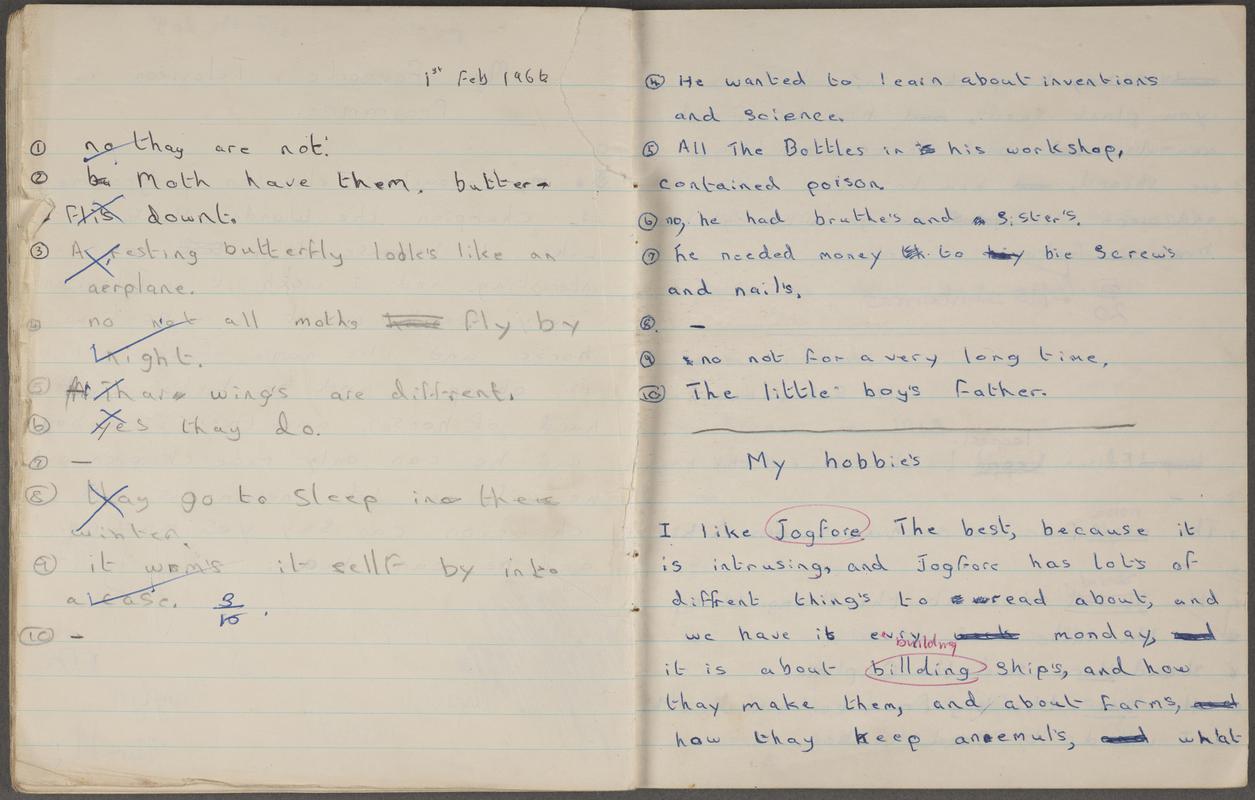 1st Feb 1966
① no thay are not.
② Moth have them. butter
flis downt.
③ A resting butterfly lodles like an
aerplane.
④ no not all moths fly by
night.
⑤ Thar wing's are different.
⑥ yes thay do.
⑦ –
⑧ thay go to sleep in the
winter.
⑨ it wrm's it sellf by into
a case. 3/10
⑩ –
④ He wanted to learn about inventions
and science.
⑤ All The Bottles in his workshop,
contained poison.
⑥ no, he had bruthe's and sister's.
⑦ he needed money to bie screws
and nail's.
⑧ –
⑨ no not for a very long time.
⑩ The little boy's father.
My hobbie's
I like Jogfore The best, because it
is intrusing, and Jogfore has lot's of
diffrent thing's to read about, and
we have it every monday,
building
it is about billding ship's, and how
thay make them, and about farms,
how thay keep anemul's, what